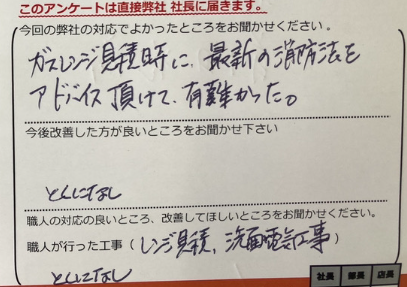 このアンケートは直接弊社 社長に届きます。
今回の弊社の対応でよかったところをお聞かせください。
ガスレンジ見積時に、最新の消防法を
アドバイス頂けて、有難かった。
今後改善した方が良いところをお聞かせ下さい
とくになし
職人の対応の良いところ、改善してほしいところをお聞かせください。
職人が行った工事（レンジ見積、洗面電気工事）
とくになし
社長 部長 店長